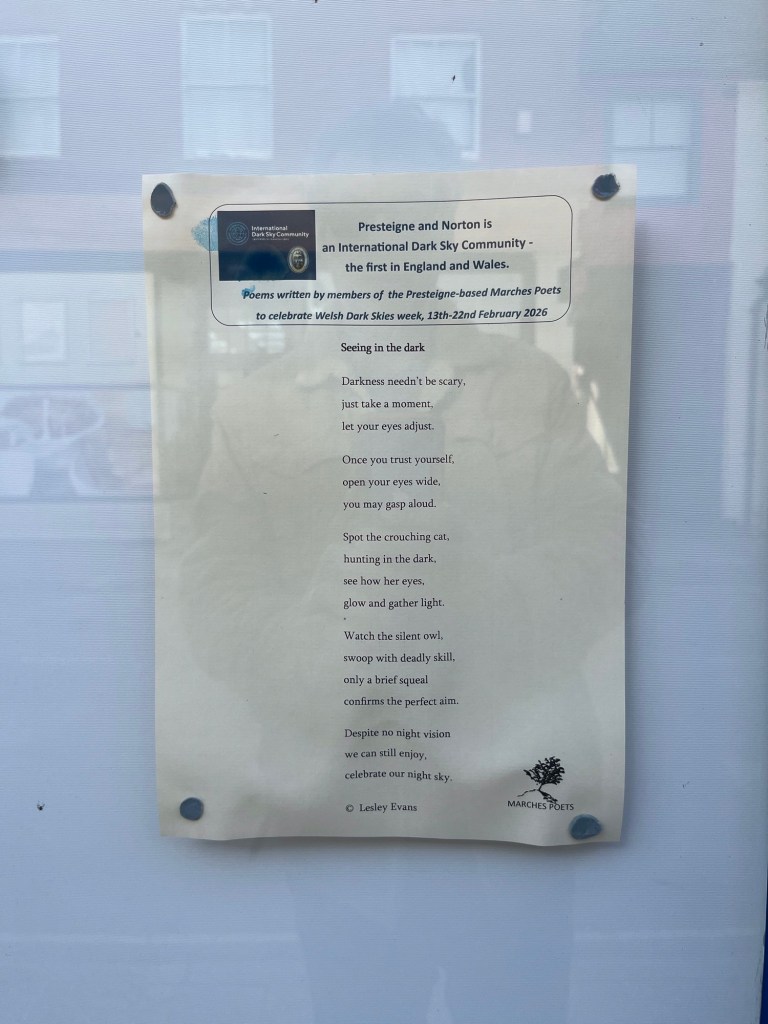 International
Dark Sky Community
Presteigne and Norton is
an International Dark Sky Community -
the first in England and Wales.
Poems written by members of the Presteigne-based Marches Poets
to celebrate Welsh Dark Skies week, 13th-22nd February 2026
Seeing in the dark
Darkness needn't be scary,
just take a moment,
let your eyes adjust.
Once you trust yourself,
open your eyes wide,
you may gasp aloud.
Spot the crouching cat,
hunting in the dark,
see how her eyes,
glow and gather light.
Watch the silent owl,
swoop with deadly skill,
only a brief squeal
confirms the perfect aim.
Despite no night vision
we can still enjoy,
celebrate our night sky.
© Lesley Evans
MARCHES POETS